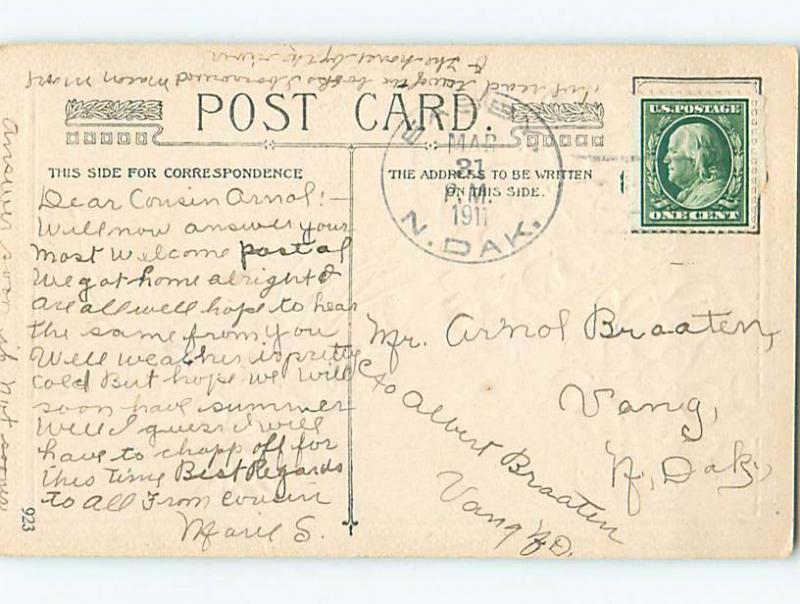 POST CARD.
THIS SIDE FOR CORRESPONDENCE
THE ADDRESS TO BE WRITTEN
ON THIS SIDE.
MAR
21
M.
1911
N. DAK.
U.S. POSTAGE
ONE CENT
Dear Cousin Arnol!—
Will now answer your
most welcome postal
We got home alright &
are all well hope to hear
the same from you
Well weather is pretty
cold But hope we will
soon have summer
Well I guess I will
have to chopp off for
this time Best Regards
to all From cousin
Marie S.
Mr. Arnol Braaten,
Vang,
N. Dak.,
c/o Albert Braaten
Vang N.D.
answer soon if not sooner
923
read
books I borrowed